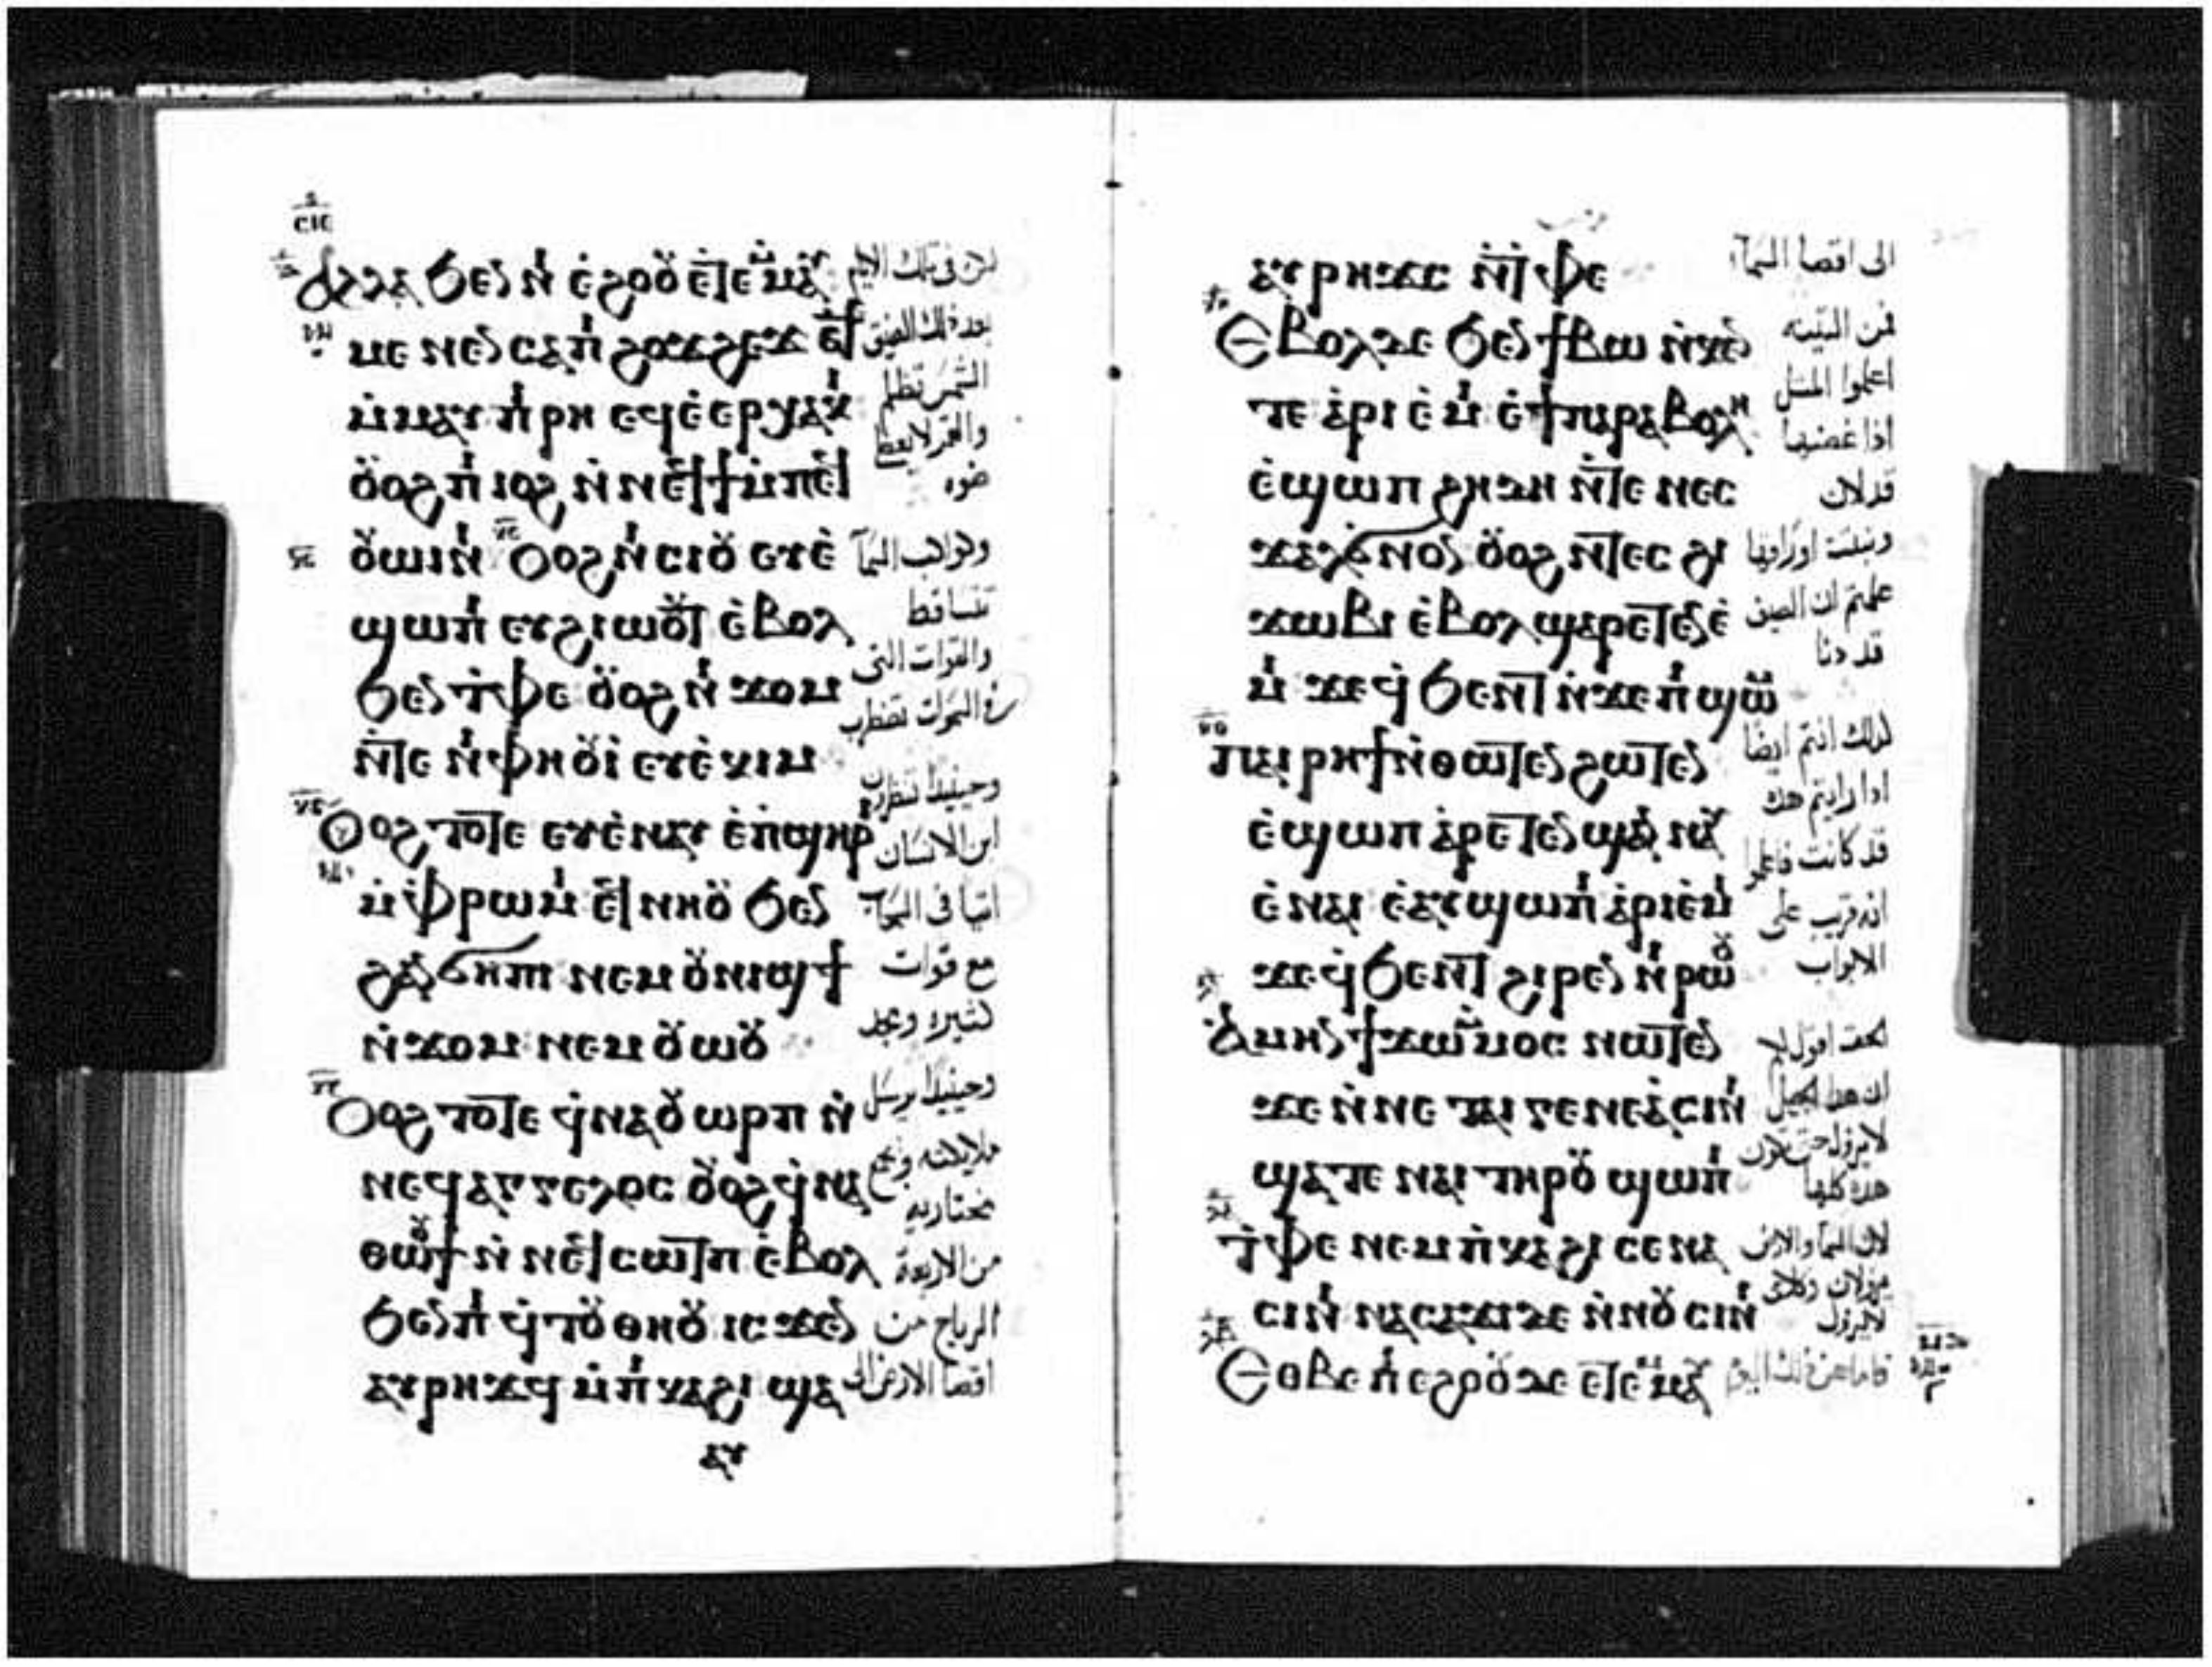 ⲥⲓⲉ
Ⲁⲗⲗⲁ ϧⲉⲛ ⲛ̀ ⲉ̀ϩⲟⲟⲩ ⲉ̀ⲧⲉ ⲙ̀ⲙⲁⲩ
ⲙⲉⲛⲉⲛⲥⲁ ⲡ̀ϩⲟϫϩⲉϫ ⲉ̀ⲧ
ⲙ̀ⲙⲁⲩ ⲡ̀ⲣⲏ ⲉϥⲉ̀ⲉⲣⲭⲁⲕⲓ
ⲟⲩⲟϩ ⲡ̀ⲓⲟϩ ⲛ̀ⲛⲉϥϯ ⲙ̀ⲡⲉϥ
ⲟⲩⲱⲓⲛⲓ ⲟⲩⲟϩ ⲛ̀ⲥⲓⲟⲩ ⲉⲩⲉ̀
ϣⲱⲡⲓ ⲉⲩϩⲓⲱⲟⲩⲧ ⲉ̀ⲃⲟⲗ
ϧⲉⲛ ⲧ̀ⲫⲉ ⲟⲩⲟϩ ⲛ̀ ϫⲟⲙ
ⲛ̀ⲧⲉ ⲛ̀ⲫⲏⲟⲩⲓ̀ ⲉⲩⲉ̀ⲕⲓⲙ
Ⲟⲩⲟϩ ⲧⲟⲧⲉ ⲉⲩⲉ̀ⲛⲁⲩ ⲉ̀ⲡ̀ϣⲏⲣⲓ
ⲙ̀ⲫ̀ⲣⲱⲙⲓ ⲉϥⲛⲏⲟⲩ ϧⲉⲛ
ϩⲁⲛϭⲏⲡⲓ ⲛⲉⲙ ⲟⲩⲛⲓϣϯ
ⲛ̀ϫⲟⲙ ⲛⲉⲙ ⲟⲩⲱⲟⲩ
Ⲟⲩⲟϩ ⲧⲟⲧⲉ ϥ̀ⲛⲁⲟⲩⲱⲣⲡ ⲛ̀
ⲛⲉϥⲁⲅⲅⲉⲗⲟⲥ ⲟⲩⲟϩ ϥ̀ⲛⲁ
ⲑⲱⲟⲩϯ ⲛ̀ ⲛⲉϥⲥⲱⲧⲡ ⲉ̀ⲃⲟⲗ
ϧⲉⲛ ⲡ̀ ϥ̀ⲧⲟⲩ ⲑⲏⲟⲩ ⲓⲥϫⲉⲛ
ⲁⲩⲣⲏϫϥ ⲙ̀ⲡ̀ⲕⲁϩⲓ ϣⲁ
ⲁⲩ
لكن في تلك الايام
بعد ذلك الضيق
الشمس تظلم
والقمر لا يعطي
ضوه
وكواكب السمآ
تتساقط
والقوات التي
في السموات تضطرب
وحينيذا تنظرون
ابن الانسان
اتيا في السحاب
مع قوات
كثيره ومجد
وحينيذا يرسل
ملايكته ويجمع
مختاريه
من الاربعة
الرياح من
اقصا الارض الى
ⲁⲩⲣⲏϫⲥ ⲛ̀ⲧ̀ⲫⲉ
Ⲉⲃⲟⲗ ⲇⲉ ϧⲉⲛ ϯⲃⲱ ⲛ̀ⲕⲉⲛ
ⲧⲉ ⲁ̀ⲣⲓ ⲉ̀ⲙⲓ ⲉ̀ϯⲡⲁⲣⲁⲃⲟⲗⲏ
ⲉ̀ϣⲱⲡ ϩⲏⲇⲏ ⲛ̀ⲧⲉ ⲛⲉⲥ
ϫⲁⲗ ϭⲛⲟⲛ ⲟⲩⲟϩ ⲛ̀ⲧⲉⲥ ϩⲓ
ϫⲱⲃⲓ ⲉ̀ⲃⲟⲗ ϣⲁⲣⲉⲧⲉⲛⲉ̀
ⲙⲓ ϫⲉ ϥ̀ϧⲉⲛⲧ ⲛ̀ϫⲉ ⲡ̀ϣⲱⲙ
Ⲡⲁⲓⲣⲏϯ ⲛ̀ⲑⲱⲧⲉⲛ ϩⲱⲧⲉⲛ
ⲉ̀ϣⲱⲡ ⲁ̀ⲣⲉⲧⲉⲛϣⲁⲛⲛⲁⲩ
ⲉ̀ⲛⲁⲓ ⲉ̀ⲁⲩϣⲱⲡⲓ ⲁ̀ⲣⲓⲉ̀ⲙⲓ
ϫⲉ ϥ̀ϧⲉⲛⲧ ϩⲓⲣⲉⲛ ⲛ̀ⲣⲱⲟⲩ
Ⲁ̀ⲙⲏⲛ ϯϫⲱ ⲙ̀ⲙⲟⲥ ⲛⲱⲧⲉⲛ
ϫⲉ ⲛ̀ⲛⲉ ⲧⲁⲓ ⲅⲉⲛⲉⲁ̀ ⲥⲓⲛⲓ
ϣⲁⲧⲉ ⲛⲁⲓ ⲧⲏⲣⲟⲩ ϣⲱⲡⲓ
ⲧ̀ⲫⲉ ⲛⲉⲙ ⲡ̀ⲕⲁϩⲓ ⲥⲉⲛⲁ
ⲥⲓⲛⲓ ⲛⲁⲥⲁϫⲓ ⲇⲉ ⲛ̀ⲛⲟⲩⲥⲓⲛⲓ
Ⲉⲑⲃⲉ ⲡ̀ⲉϩⲟⲟⲩ ⲇⲉ ⲉ̀ⲧⲉ ⲙ̀ⲙⲁⲩ
الى اقصا السمآ
فمن التينه
اعلموا المثل
اذا غصنها
قد لان
ونبتت اوراقها
علمتم ان الصيف
قد دنا
كذلك انتم ايضا
اذا رايتم هذه
قد كانت فاعلموا
انه قريب على
الابواب
الحق اقول لكم
ان هذا الجيل
لا يزول حتى تكون
هذه كلها
لان السمآ والارض
يزولان وكلامي
لا يزول
فاما عن ذلك اليوم